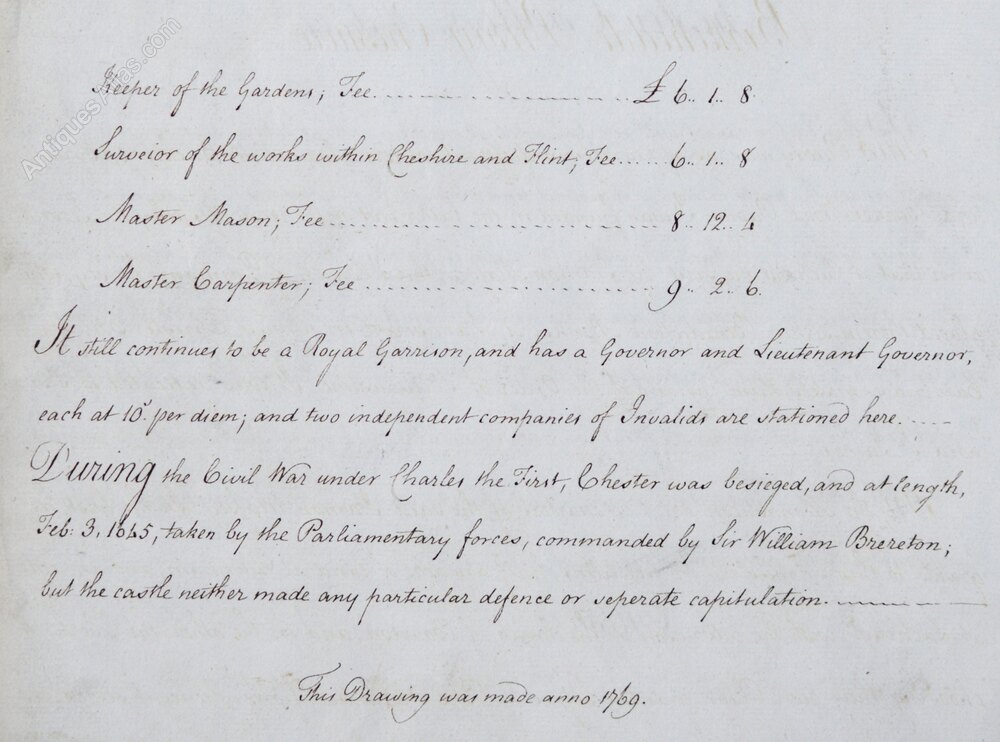 Keeper of the Gardens; Fee ........ £ 6.. 1.. 8.
Surveior of the works within Cheshire and Flint; Fee ...... 6.. 1.. 8
Master Mason; Fee ........ 8.. 12.. 4
Master Carpenter; Fee ........ 9.. 2.. 6.
It still continues to be a Royal Garrison, and has a Governor and Lieutenant Governor,
each at 10s. per diem; and two independent companies of Invalids are stationed here.
During the Civil War under Charles the First, Chester was besieged, and at length,
Feb: 3, 1645, taken by the Parliamentary forces, commanded by Sir William Brereton;
but the castle neither made any particular defence or seperate capitulation.
This Drawing was made anno 1769.
AntiquesAtlas.com